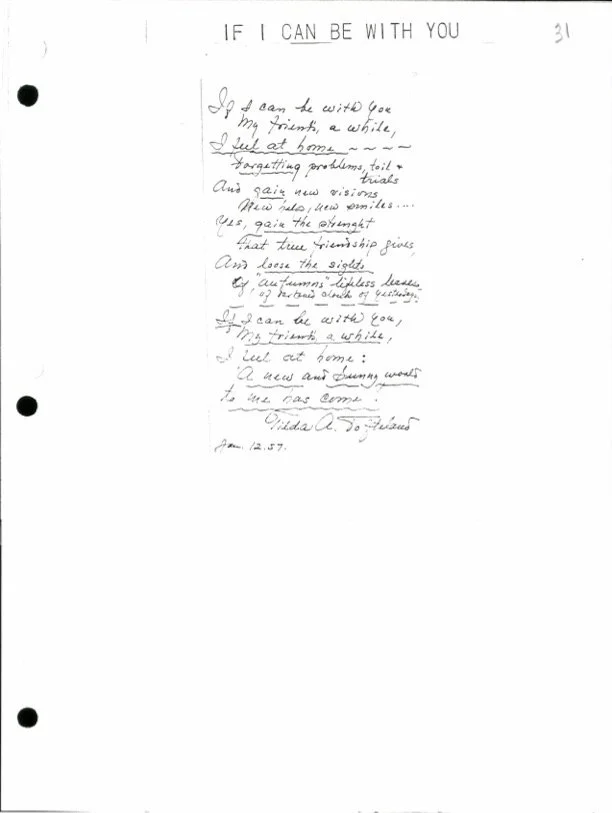 IF I CAN BE WITH YOU
31
If I can be with You
My friends, a while,
I feel at home ~ ~ ~ ~
Forgetting problems, toil +
trials
And gain new visions
New helps, new smiles....
Yes, gain the strenght
That true friendship gives
And loose the sights
Of "autumns" lifeless leaves
of clouds of yesterdays.
If I can be with You,
My friends, a while,
I feel at home:
A new and sunny world
to me has come!
Tilda A.
Jan. 12. 57.